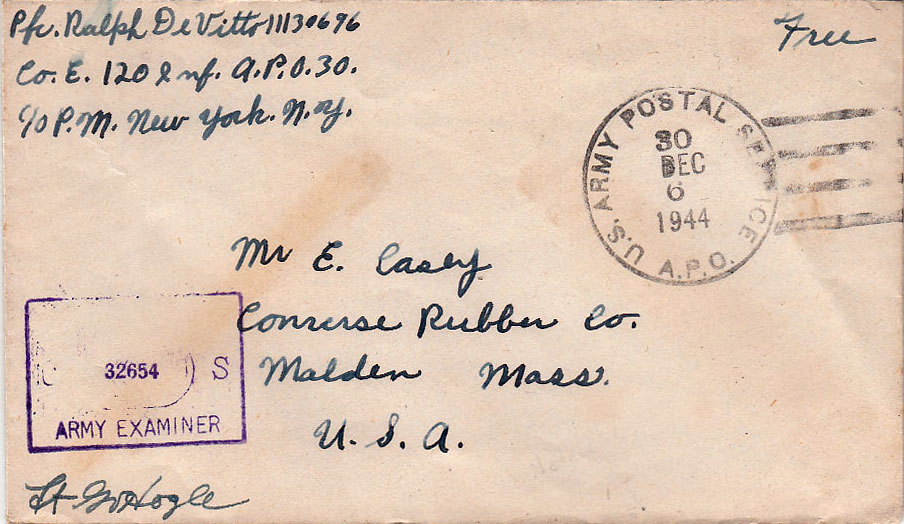 Pfc. Ralph DeVitto 11130696
Free
Co. E. 120 Inf. A.P.O. 30.
c/o P.M. New York. N.Y.
U.S. ARMY POSTAL SERVICE A.P.O.
30
DEC
6
1944
Mr E. Casey
Converse Rubber Co.
Malden Mass.
U. S. A.
S
32654
ARMY EXAMINER
Lt